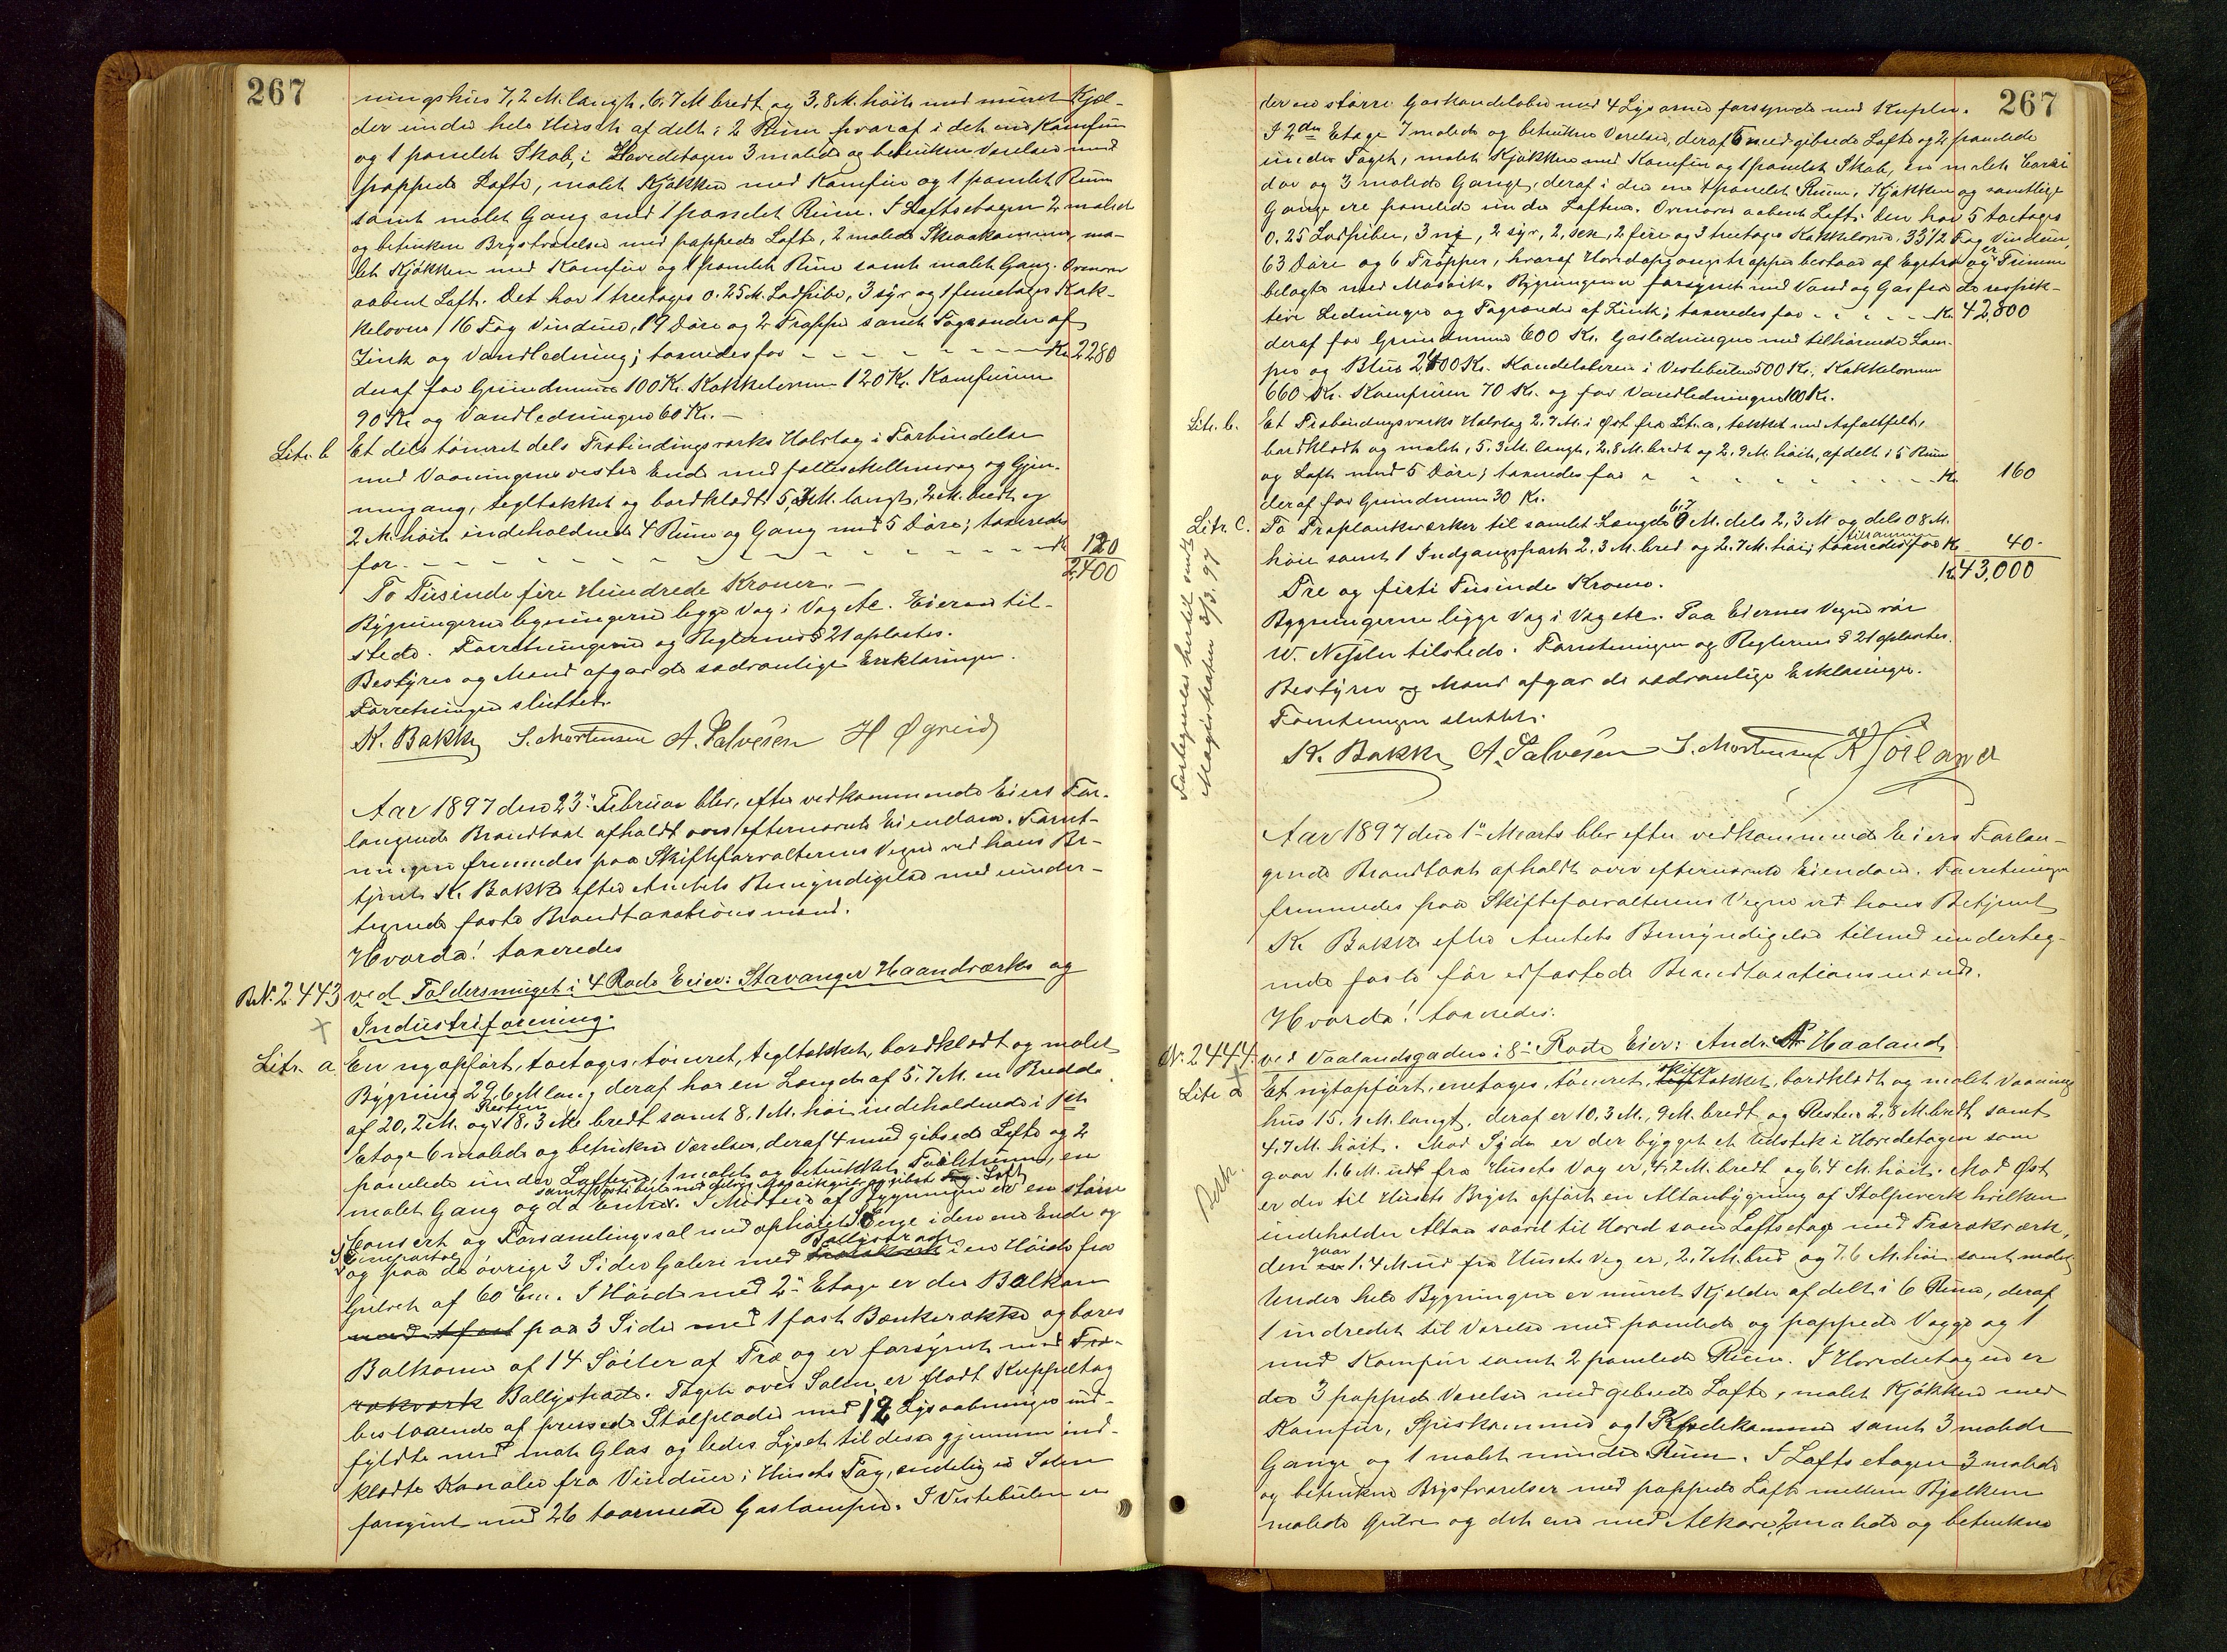 267
ningshus 7,2 M. langt, 6,7 M bredt og 3,8 M. høit med muret Kjæl-
der under hele Huset afdelt i 2 Rum hvoraf i det ene Komfur
og 1 panelet Skab, i Hovedetagen 3 malede og betrukne Værelser med
pappede Lofte, malet Kjøkken med Komfur og 1 panelet Rum
samt malet Gang med 1 panelet Rum. I Loftsetagen 2 malede
og betrukne Brystværelser med pappede Lofte, 2 malede Skraakammer, ma-
let Kjøkken med Komfur og 1 panelet Rum samt malet Gang. Ovenover
aabent Loft. Det har 1 treetages 0.25 M. Ladpibe, 3 syv og 1 femetages Kak-
kelovne, 16 Fag Vinduer, 19 Døre og 2 Trapper samt Tagrender af
Zink og Vandledning; taxeredes for - - - Kr. 2280
deraf for Grundmuren 100 Kr. Kakkelovnene 120 Kr. Komfurene
90 Kr. og Vandledningen 60 Kr. -
Litr. b Et dels tømret dels Træbindingsværks Halvtag i Forbindelse
med Vaaningens vestre Ende med fælles Mellemvæg og Gjen-
nemgang, tegltækket og bordklædt 5,7 M. langt, 2 M. bredt og
2 M. høit indeholdende 4 Rum og Gang med 5 Døre; taxeredes
for - - - Kr. 120
2,400
To Tusinde fire Hundrede Kroner. -
Bygningerne bygningerne ligge Væg i Væg etc. Eieren til-
stede. Forretningen og Reglernes § 21 oplæstes.
Bestyrer og Mænd afgav de sædvanlige Erklæringer.
Forretningen sluttet.
K. Bakke S. Mortensen A. Salvesen H Øgreid
Aar 1897 den 23de Februar blev, efter vedkommende Eiers For-
langende Brandtaxt afholdt over efternævnte Eiendom. Forret-
ningen fremmedes paa Skifteforvalterens Vegne ved hans Be-
tjent K. Bakke efter Amtets Bemyndigelse med under-
tegnede faste Brandtaxationsmænd.
Hvorda! taxeredes
B.N. 2443 ved Toldersmuget i 4 Rode Eier: Stavanger Haandværks og
Industriforening.
Litr. a. En nyopført, toetages, tømret, tegltækket, bordklædt og malet
Bygning 29,6 M lang deraf har en Længde af 5,7 M. en Bredde
af 20,2 M. og Resten 18,3 M bredt samt 8.1 M. høi indeholdende i 1ste
Etage 6 malede og betrukne Værelser, deraf 4 med gibsede Lofte og 2
panelede under Lofterne, 1 malet og betrukket Toiletrum, en
samt Vestibule med Fliser Mosaikgulv og gibset Loft
malet Gang og do Entré. I Midten af Bygningen er en større
Concert og Forsamlingssal med ophøiet Scene i den ene Ende og
og paa de øvrige 3 Sider Galeri med Ballystrade i en Høide fra
Gulvet af 60 Cm. I Høide med 2den Etage er der Balkon
med 1 fast paa 3 Sider med 1 fast Bænkerække og bæres
Balkonen af 14 Søiler af Træ og er forsynet med Træ-
rækværk Ballystrade. Taget over Salen er fladt Kuppeltag
bestaaende af pressede Staalplader med 12 Lysaabninger ud-
fyldte med mat Glas og ledes Lyset til disse gjennem ind-
klædte Kanaler fra Vinduer i Husets Tag, endelig er Salen
forsynet med 26 toarmede Gaslamper. I Vestibulen er
267
der en større Gaskandelaber med 4 Lysarme forsynede med Kupler.
I 2den Etage 7 malede og betrukne Værelser, deraf 5 med gibsede Lofte og 2 panelede
under Taget, malet Kjøkken med Komfur og 1 panelet Skab, en malet Corri
dor og 3 malede Gange, deraf i den ene 1 panelet Rum. Kjøkken og samtlige
Gange ere panelede under Loftene. Ovenover aabent Loft. Den har 5 toetages
0.25 Ladpiber, 3 ni, 2 syv, 2 sex, 2 fire og 3 treetages Kakkelovne, 33 1/2 Fag Vinduer,
63 Døre og 6 Trapper, hvoraf Hovedopgangstrappen bestaar af Egetræ og Trinene
belagte med Mosaik. Bygningen er forsynet med Vand og Gas fra de respek-
tive Ledninger og Tagrender af Zink; taxeredes for - - - Kr. 42,800
deraf for Grundmuren 600 Kr. Gasledningen med tilhørende Lam-
per og Blus 2400 Kr. Kandelaberen i Vestibulen 500 Kr. Kakkelovnene
660 Kr. Komfuren 70 Kr. og for Vandledningen 100 Kr.
Litr. b. Et Træbindingsværks Halvtag 2.7 M. i Øst fra Litr. a, tækket med Asfaltfelt,
bordklædt og malet, 5.3 M. langt, 2.8 M. bredt og 2.9 M. høit, afdelt i 5 Rum
og Loft med 5 Døre; taxeredes for - - - Kr. 160
deraf for Grundmuren 30 Kr.
Litr. C. To Træplankeværker til samlet Længde 6,7 M. dels 2,3 M og dels 0.8 M.
høie samt 1 Indgangsport 2.3 M. bred og 2.7 M. høi; tilsammen taxeredes for Kr. 40-
Kr. 43,000
Tre og firti Tusinde Kroner.
Bygningerne ligge Væg i Væg etc. Paa Eiernes Vegne var
W. Nessler tilstede. Forretningen og Reglernes § 21 oplæstes.
Bestyrer og Mænd afgav de sædvanlige Erklæringer.
Forretningen sluttet.
K. Bakke A. Salvesen S. Mortensen
Magistraten 3/3. 97
Aar 1897 den 1ste Marts blev efter vedkommende Eiers Forlan-
gende Brandtaxt afholdt over efternævnte Eiendom. Forretningen
fremmedes paa Skifteforvalterens Vegne ved hans Betjent
K. Bakke efter Amtets Bemyndigelse tilmed underteg-
nede faste før edfæstede Brandtaxationsmænd.
Hvorda! taxeredes:
N. 2444 ved Vaalandsgaden i 8de Rode Eier: Andr. A. Haaland
Litr a Et nytopført, enetages, tømret, skifertækket, bordklædt og malet Vaanings
hus 15.1 M. langt, deraf er 10.3 M., 9 M. bredt og Resten 2,8 M. bredt samt
4,7 M. høit. Mod Syd er der bygget et Udstik i Hovedetagen som
gaar 1.6 M. udt fra Husets Væg er 4,2 M. bredt og 6.4 M. høit. Mod Øst
er der til Husets Bryst opført en Altanbygning af Stolpeverk hvilken
indeholder Altan saavel til Hoved som Loftsetage med Trærækværk,
den gaar 1.4 M ud fra Husets Væg er 2.7 M. bred og 7.6 M. høi samt malet
Under hele Bygningen er muret Kjælder afdelt i 6 Rum, deraf
1 indredet til Værelse med panelede og pappede Vægge og 1
med Komfur samt 2 panelede Rum. I Hovedetagen er
der 3 pappede Værelser med gibsede Lofte, malet Kjøkken med
Komfur, Spiskammer og 1 Klædekammer samt 3 malede
Gange og 1 malet mindre Rum. I Loftsetagen 3 malede
og betrukne Brystværelser med pappede Loft mellem Bjelkerne
malede Gulve og det ene med Alkove, 2 malede og betrukne